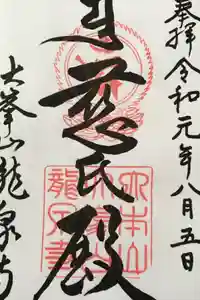 奉拝令和元年八月五日
慈氏殿
大峯山龍泉寺